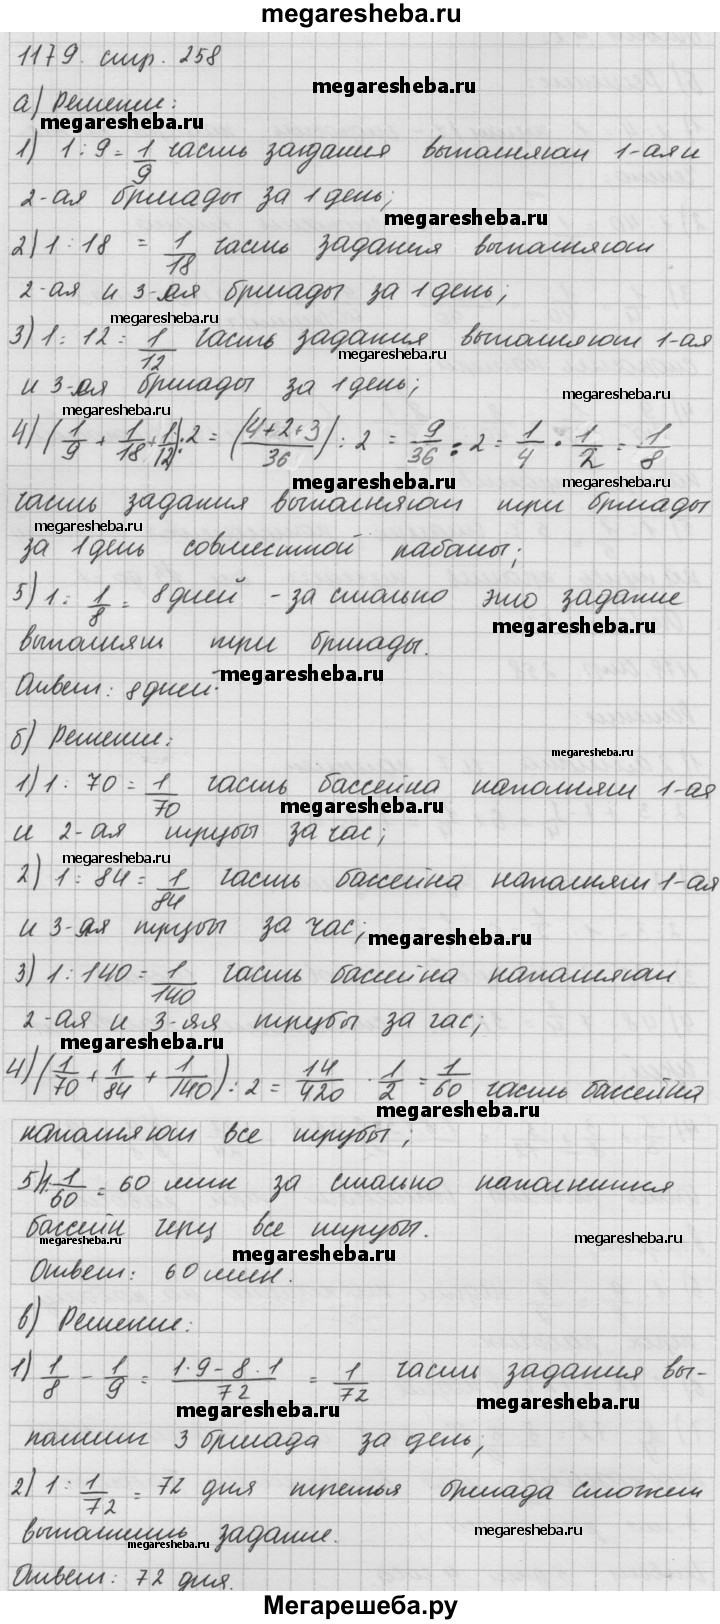 megaresheba.ru
1179. стр. 258
megaresheba.ru
а) Решение:
megaresheba.ru
1) 1:9 = 1/9 часть задания выполняют 1-ая и
2-ая бригады за 1 день;
megaresheba.ru
2) 1:18 = 1/18 часть задания выполняют
2-ая и 3-ая бригады за 1 день;
megaresheba.ru
3) 1:12 = 1/12 часть задания выполняют 1-ая
megaresheba.ru
и 3-ая бригады за 1 день;
megaresheba.ru
4) (1/9 + 1/18 + 1/12):2 = ((4+2+3)/36) : 2 = 9/36 : 2 = 1/4 · 1/2 = 1/8
megaresheba.ru megaresheba.ru
часть задания выполняют три бригады
megaresheba.ru
за 1 день совместной работы;
5) 1: 1/8 = 8 дней - за столько это задание
megaresheba.ru
выполнят три бригады.
megaresheba.ru
Ответ: 8 дней.
б) Решение:
megaresheba.ru
1) 1: 70 = 1/70 часть бассейна наполняют 1-ая
megaresheba.ru
и 2-ая трубы за час;
megaresheba.ru
2) 1:84 = 1/84 часть бассейна наполняют 1-ая
и 3-ая трубы за час;
megaresheba.ru
3) 1:140 = 1/140 часть бассейна наполняют
2-ая и 3-яя трубы за час;
megaresheba.ru
4) (1/70 + 1/84 + 1/140) : 2 = 14/420 · 1/2 = 1/60 часть бассейна
megaresheba.ru
наполняют все трубы;
5) 1: 1/60 = 60 мин за столько наполнится
бассейн через все трубы.
megaresheba.ru megaresheba.ru
megaresheba.ru
Ответ: 60 мин.
в) Решение:
1) 1/8 - 1/9 = (1·9 - 8·1)/72 = 1/72 часть задания вы-
megaresheba.ru megaresheba.ru
полнит 3 бригада за день;
2) 1: 1/72 = 72 дня третья бригада сможет
выполнить задание.
megaresheba.ru
megaresheba.ru
Ответ: 72 дня.
Мегарешеба.ру